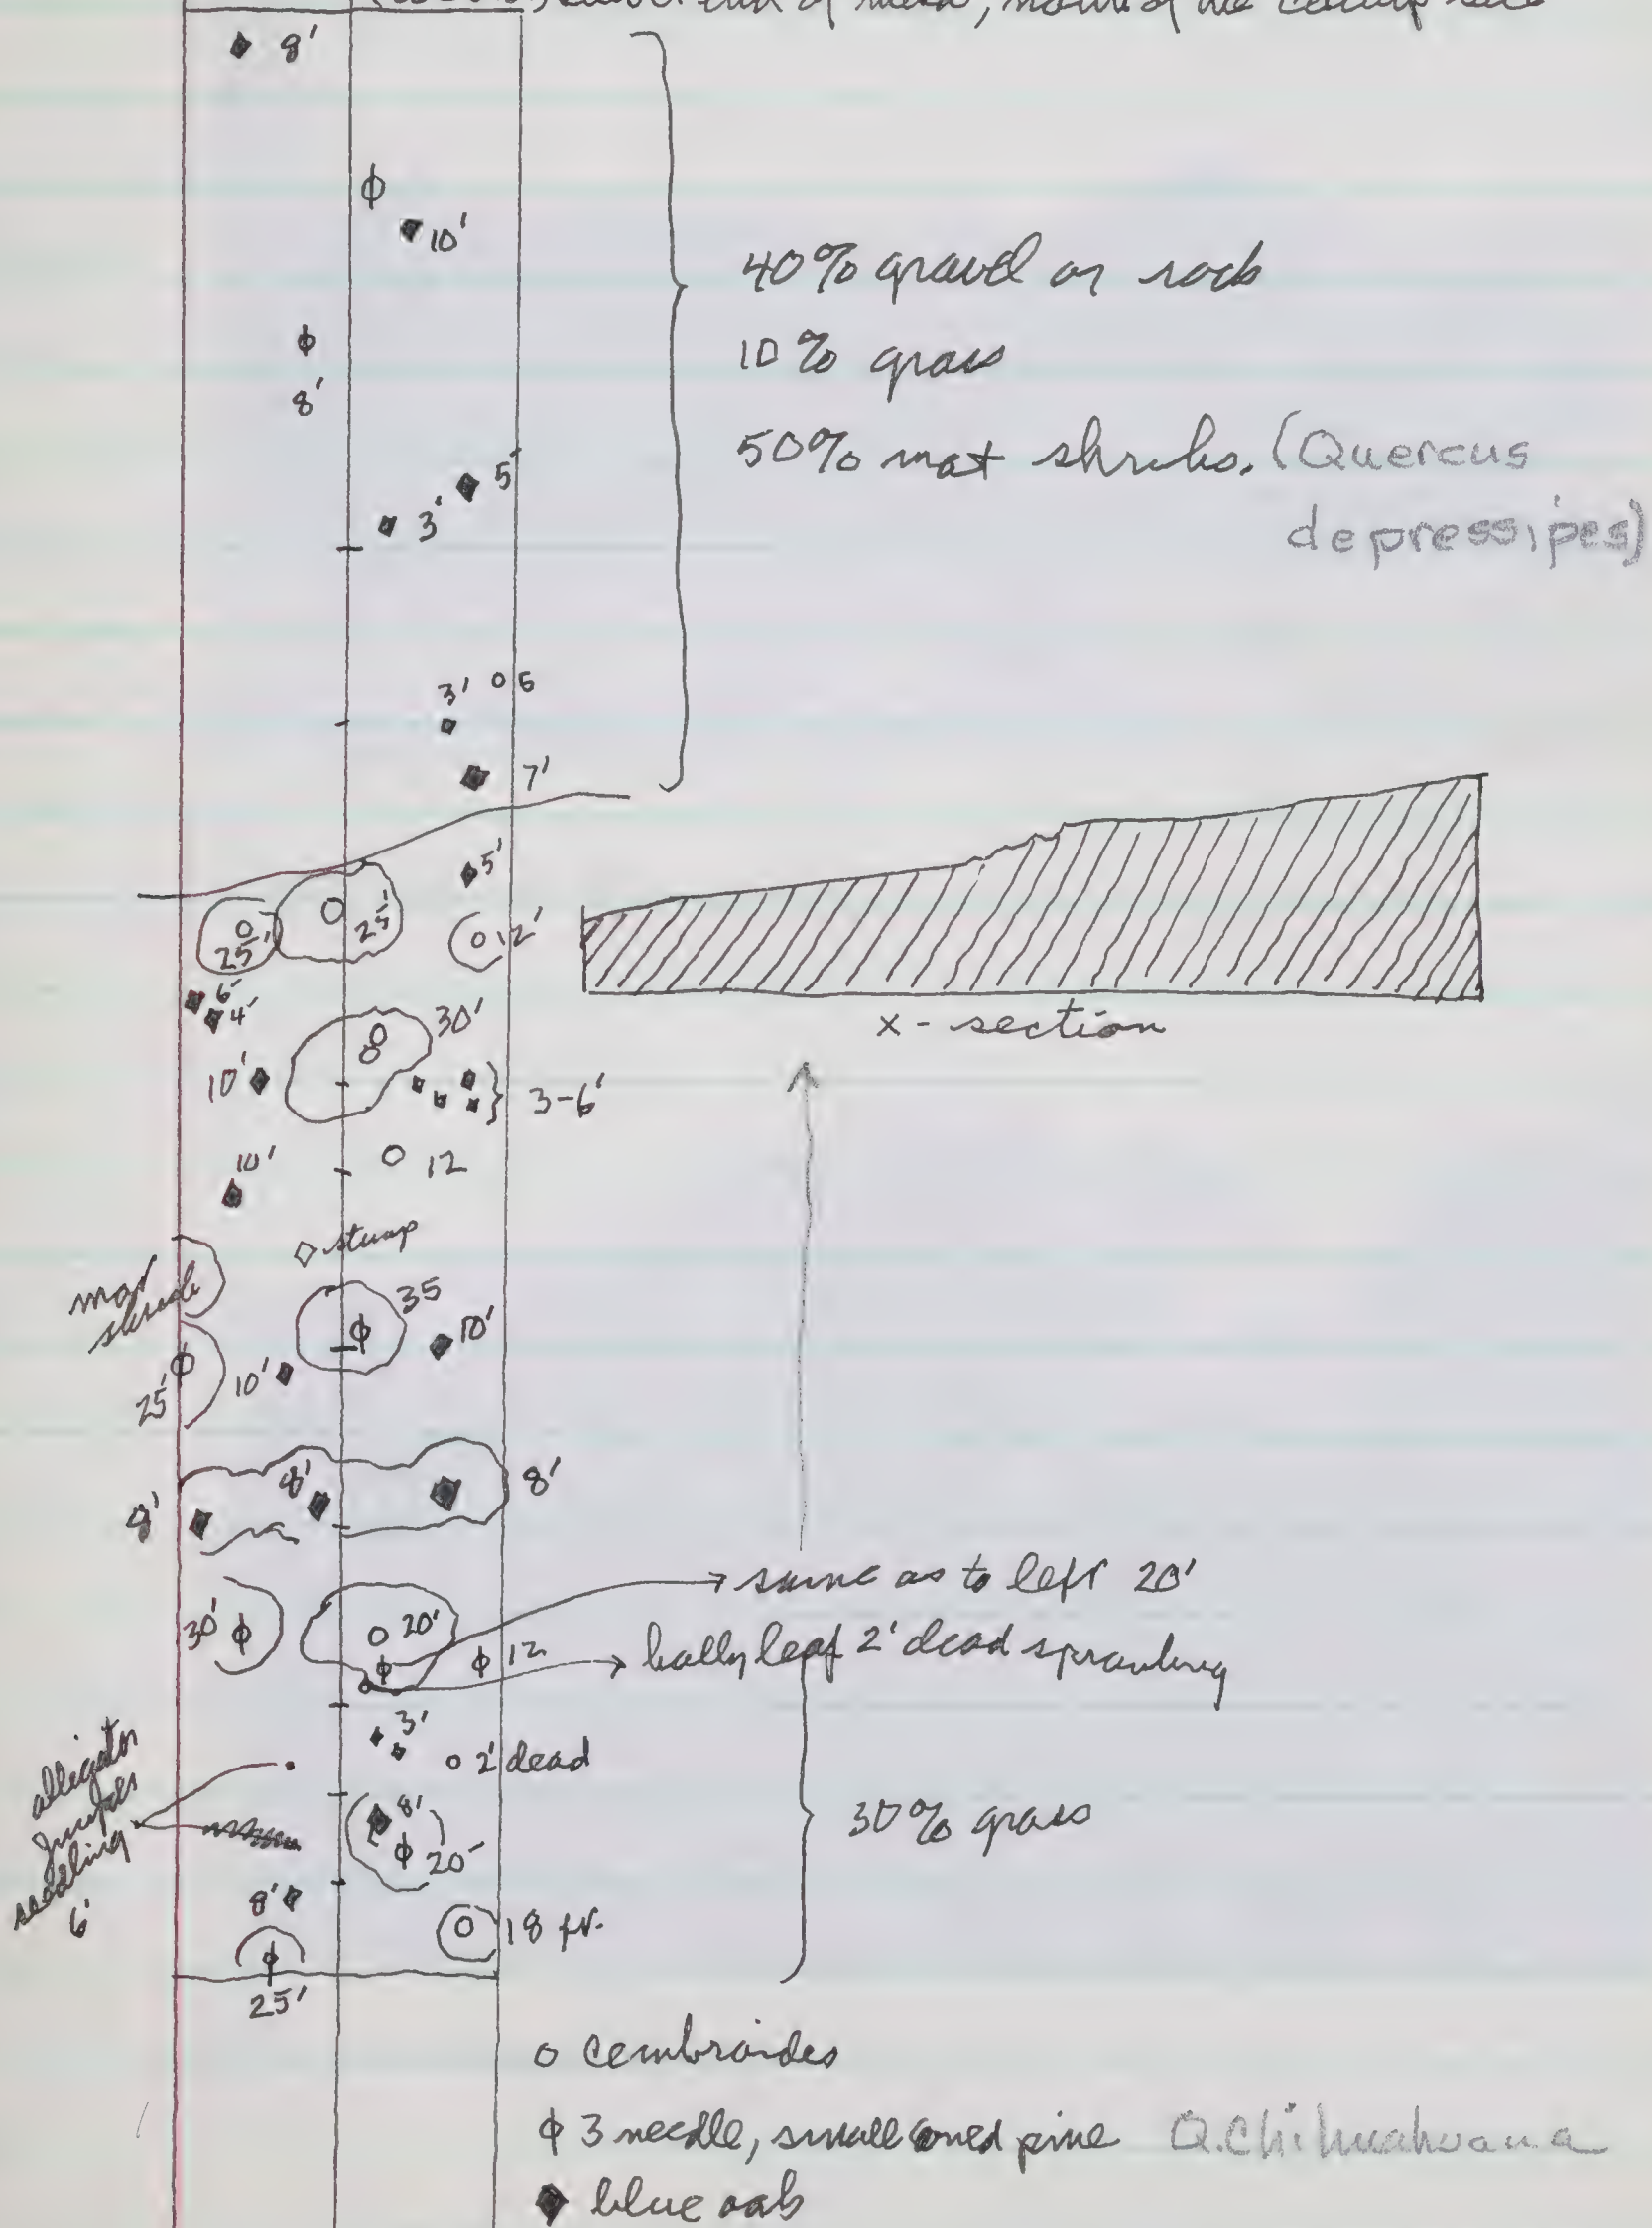 end of mesa, north of
8'
10'
40% gravel or rock
8'
10% grass
50% mat shrubs. (Quercus
depressipes)
5'
3'
3' 6
7'
5'
25' 25' 12'
6'
4'
30'
x-section
10' 3-6'
10' 12
stump
mat
shrub
35
10'
25' 10'
8' 8' 8'
same as to left 20'
30' 20'
12 holly leaf 2' dead sprawling
3'
2' dead
alligator
juniper
seedling
6'
8'
20'
30% grass
8'
18 ft.
25'
o cembroides
ϕ 3 needle, small coned pine Q. Chihuahuana
♦ blue oak